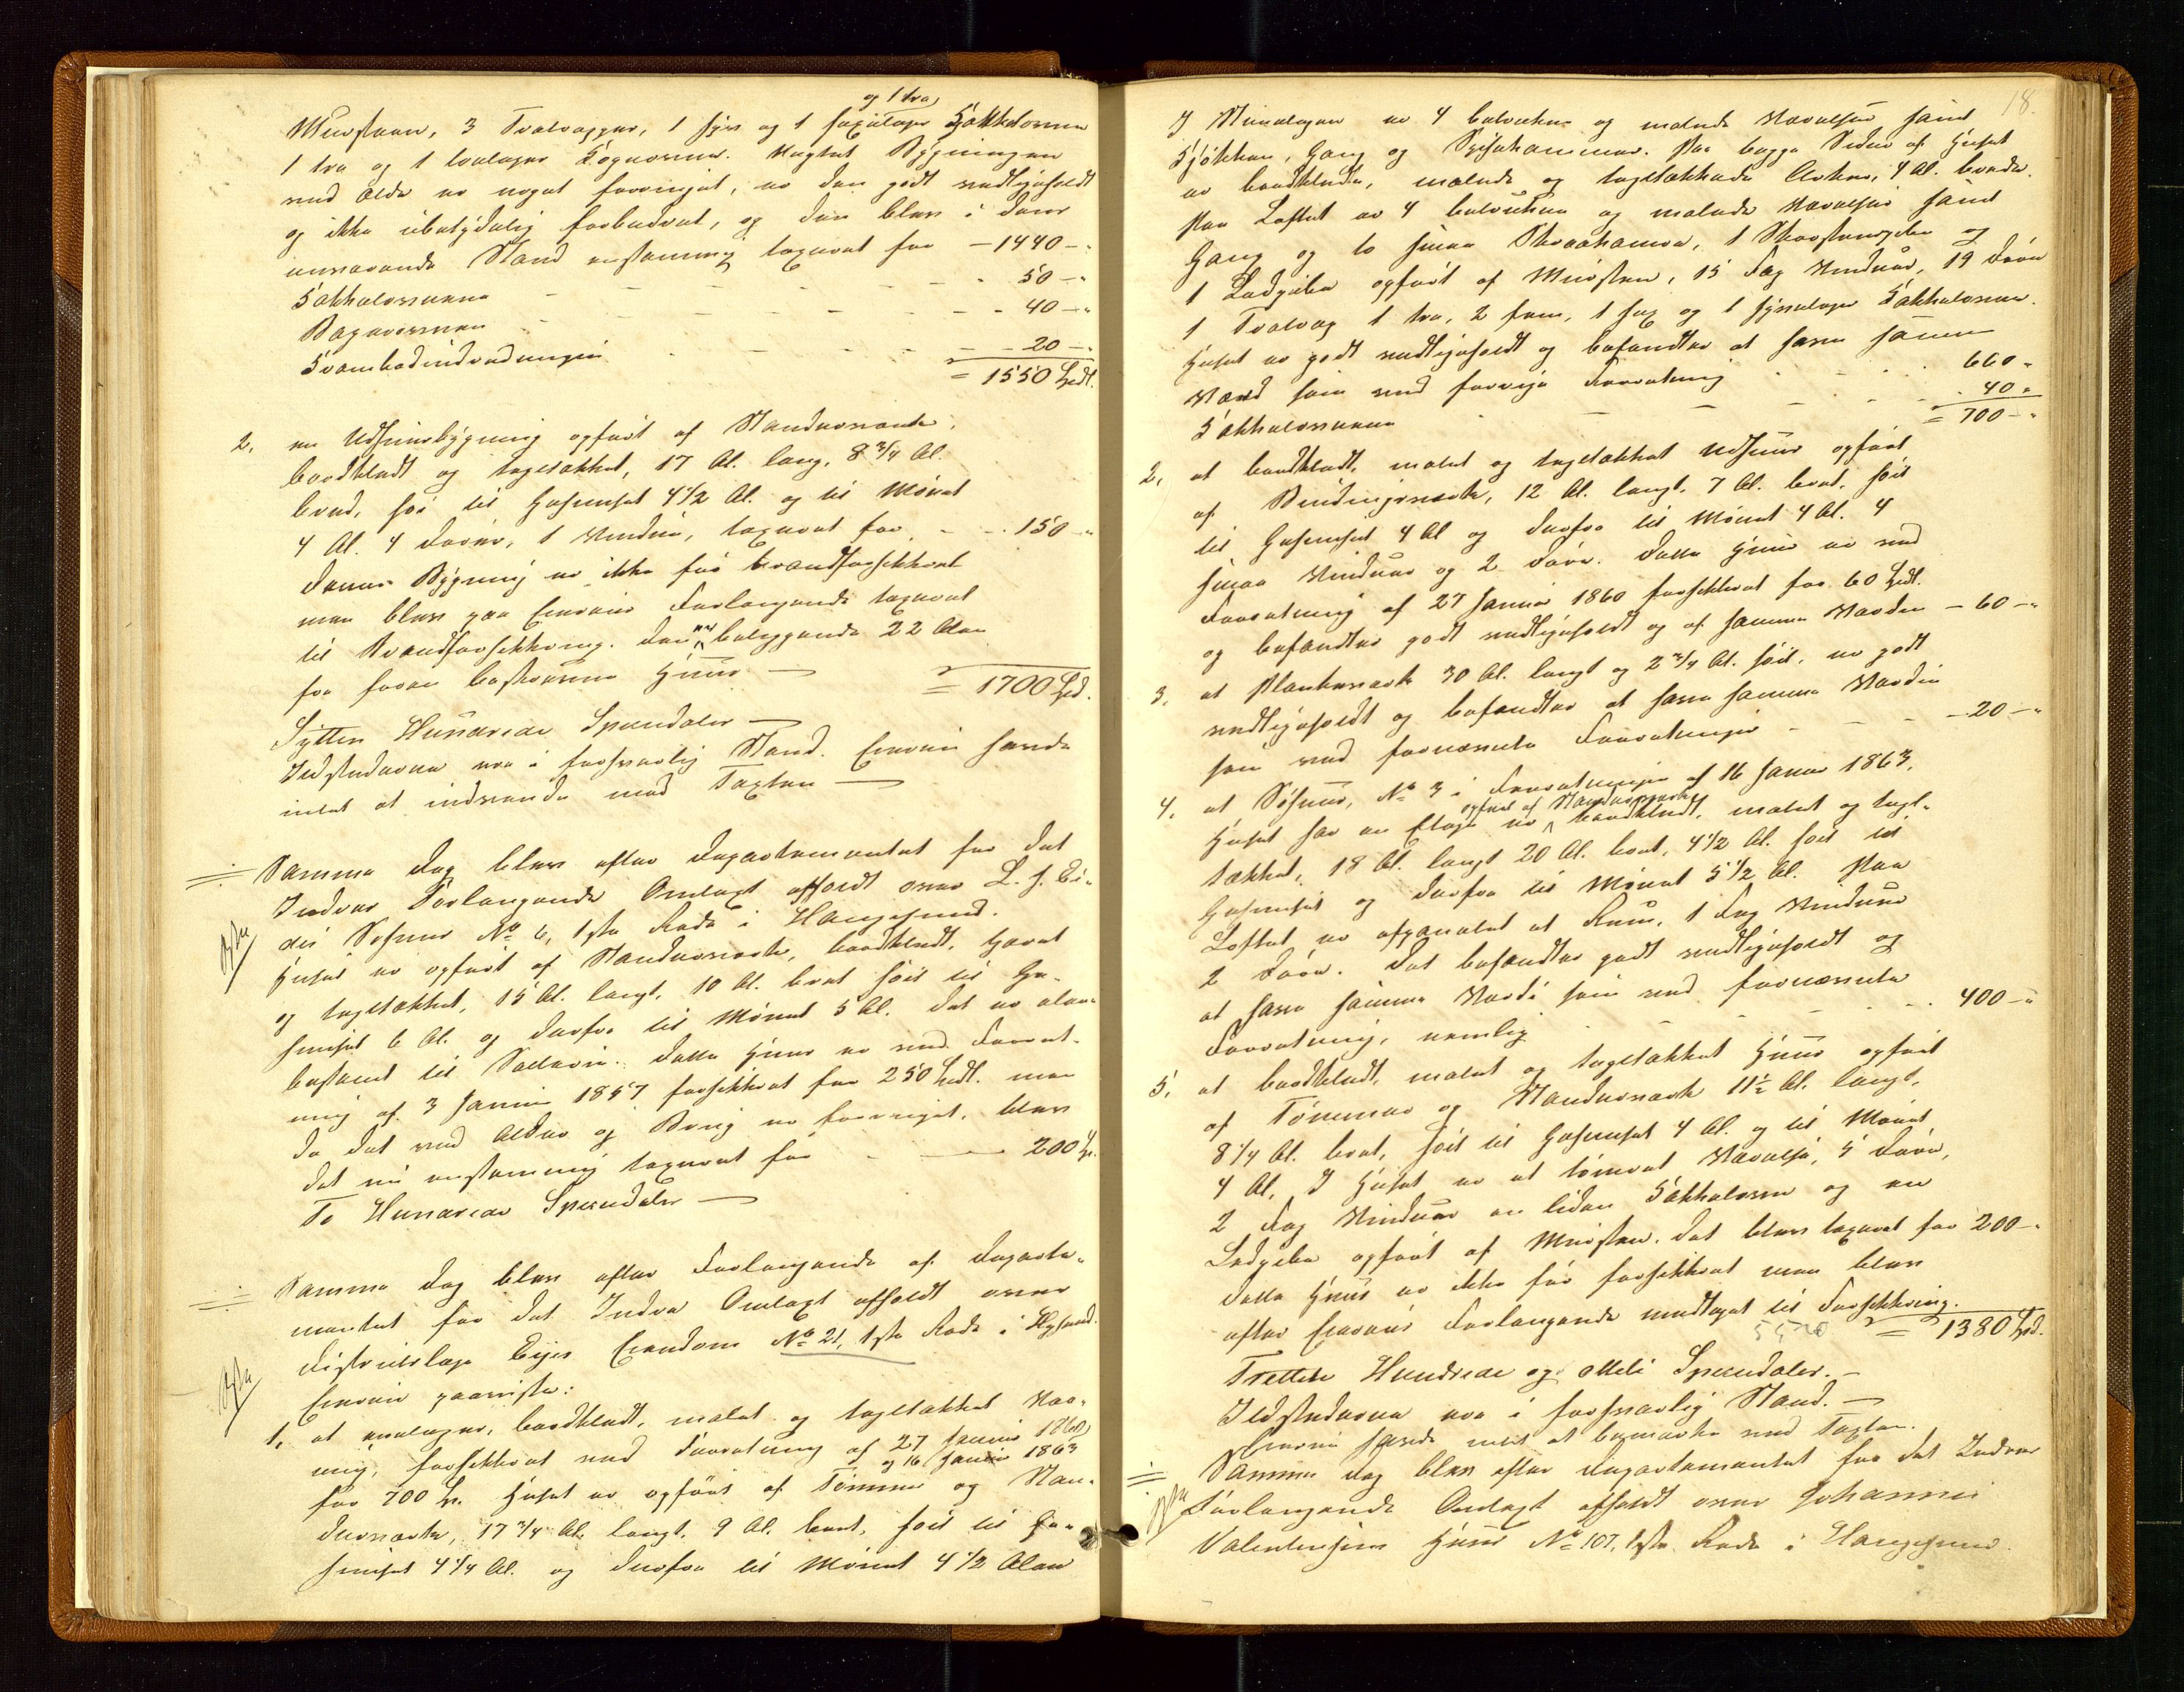 og 1 tre
Mursteen, 3 Tralvægger, 1 fyr og 1 sexetages Kakkelovne
1 tre og 1 toetages Kogeovn. Uagtet Bygningen
ved Ælde er noget forringet, er den godt vedligeholdt
og ikke ubetydelig forbedret, og den blev i dens
nuværende Stand enstemmig taxeret for – 1440 –
Kakkelovnene – 50 –
Bagerovnen – 40 –
– 20 –
= 1550 Spdl.
2, en Udhuusbygning opført af Standerverk,
bordklædt og tagstækket, 17 Al. lang, 8 3/4 Al.
bred, høi til Gesimset 4 1/2 Al. og til Mønet
4 Al. 4 Døre, 1 Vindue, taxeret for – 150 –
Denne Bygning er ikke før brandforsikkret
men blev paa Eierens Forlangende taxeret
til Brandforsikkring. Den er beliggende 22 Alen
fra foran beskrevne Huus –
= 1700 Spd.
Sytten Hundrede Speciedaler –
Ildstederne var i forsvarlig Stand. Eieren havde
intet at indvende mod Taxten –
Samme Dag blev efter Departementet for det
Indres Forlangende Omtaxt afholdt over L. J. Ei-
des Søhuus No 6, 1ste Rode i Haugesund.
Huset er opført af Standerverk, bordklædt, farvet
og tagstækket, 15 Al. langt, 10 Al. bredt høit til Ge-
simset 6 Al. og derfra til Mønet 5 Al. Det er alene
bestemt til Salteri. Dette Huus er ved Forret-
ning af 3 Januar 1857 forsikkret for 250 Spdl. men
da det ved Ælde og Brug er forringet, blev
det nu enstemmig taxeret for – 200 Sp.
To Hundrede Speciedaler –
Samme Dag blev efter Forlangende af Departe-
mentet for det Indre Omtaxt afholdt over
Distriktslæge Eyes Eiendom No 21, 1ste Rode i Hgsund.
Eieren paaviste:
1, et toetages, bordklædt, malet og tagstækket Vaa-
ning, forsikkret ved Forretning af 27 Januar 1860
og 16 Januar 1863
for 700 Sp. Huset er opført af Tømmer og Stan-
derverk, 17 3/4 Al. langt, 9 Al. bredt, høit til Ge-
simset 4 1/4 Al. og derfra til Mønet 4 1/2 Alen
18.
I Stueetagen er 4 betrukne og malede Værelser samt
Kjøkken, Gang og Spisekammer. Paa begge Sider af Huset
er bordklædte, malede og tagstækkede Arker, 4 Al. brede.
Paa Loftet er 4 betrukne og malede Værelser samt
Gang og to smaa Skraakamre, 1 Skorstenspibe og
1 Ledpibe opført af Mursten, 15 Fag Vinduer, 19 Døre
1 Tralvæg 1 tre, 2 fem, 1 sex og 1 fyretages Kakkelovne.
Huset er godt vedligeholdt og befandtes at have samme
Værd som ved forrige Forretning – 660 –
Kakkelovnene – 40 –
= 700 –
2, et bordklædt, malet og tagstækket Udhuus opført
af Bindingsverk, 12 Al. langt, 7 Al. bredt, høit
til Gesimset 4 Al og derfra til Mønet 4 Al. 4
smaa Vinduer og 2 Døre. Dette Huus er ved
Forretning af 27 Januar 1860 forsikkret for 60 Spdl.
og befandtes godt vedligeholdt og af samme Værdie – 60 –
3, et Plankeverk 30 Al. langt og 2 3/4 Al. høit, er godt
vedligeholdt og befandtes at have samme Værdie
som ved fornævnte Forretninger – 20 –
4, et Søhuus, No 3 i Forretningen af 16 Januar 1863.
opført af Standerverk
Huset har en Etage er bordklædt, malet og tagt-
tækket, 18 Al. langt 20 Al. bredt, 4 1/2 Al. høit til
Gesimset og derfra til Mønet 5 1/2 Al. Paa
Loftet er afpanelet et Rum, 1 Fag Vinduer
2 Døre. Det befandtes godt vedligeholdt og
at have samme Værdi som ved fornævnte
Forretning, nemlig – 400 –
5, et bordklædt, malet og tagstækket Huus opført
af Tømmer og Standerverk 11 1/2 Al. langt,
8 1/4 Al. bredt, høit til Gesimset 4 Al. og til Mønet
4 Al. I Huset er et tømret Værelse, 5 Døre,
2 Fag Vinduer en liden Kakkelovn og en
Ledpibe opført af Mursten. Det blev taxeret for 200 –
Dette Huus er ikke før forsikkret men blev
efter Eierens Forlangende medtaget til Forsikkring.
= 1380 Spd.
Tretten Hundrede og otteti Speciedaler. –
Ildstederne var i forsvarlig Stand. –
Eieren havde intet at bemærke ved Taxten.
Samme Dag blev efter Departementet for det Indres
Forlangende Omtaxt afholdt over Johannes
Valentinsens Huus No 107, 1ste Rode i Haugesund.